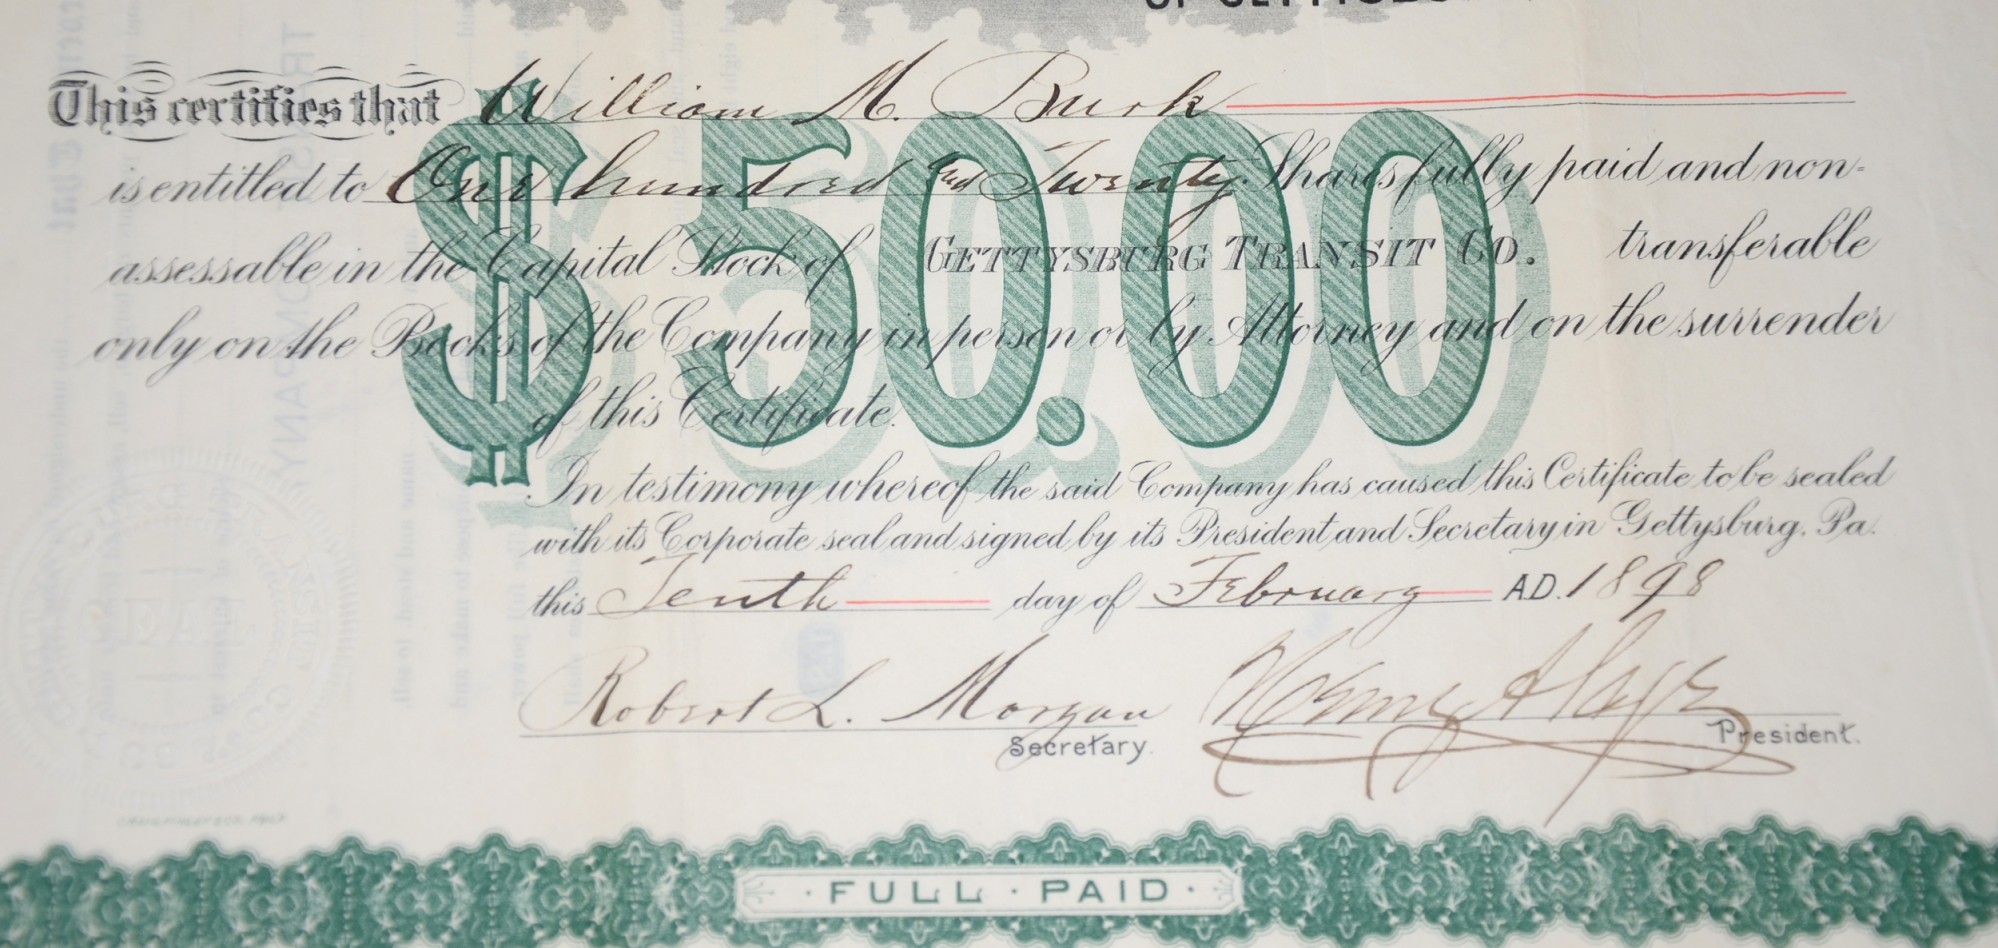 This certifies that William M. Burk
is entitled to One hundred and Twenty Shares fully paid and non-
assessable in the Capital Stock of GETTYSBURG TRANSIT CO. transferable
only on the Books of the Company in person or by Attorney and on the surrender
of this Certificate.
$50.00
In testimony whereof the said Company has caused this Certificate to be sealed
with its Corporate seal and signed by its President and Secretary in Gettysburg, Pa.
this Tenth day of February A.D. 1898
Robert L. Morgan
Secretary. President.
SEAL
· FULL · PAID ·